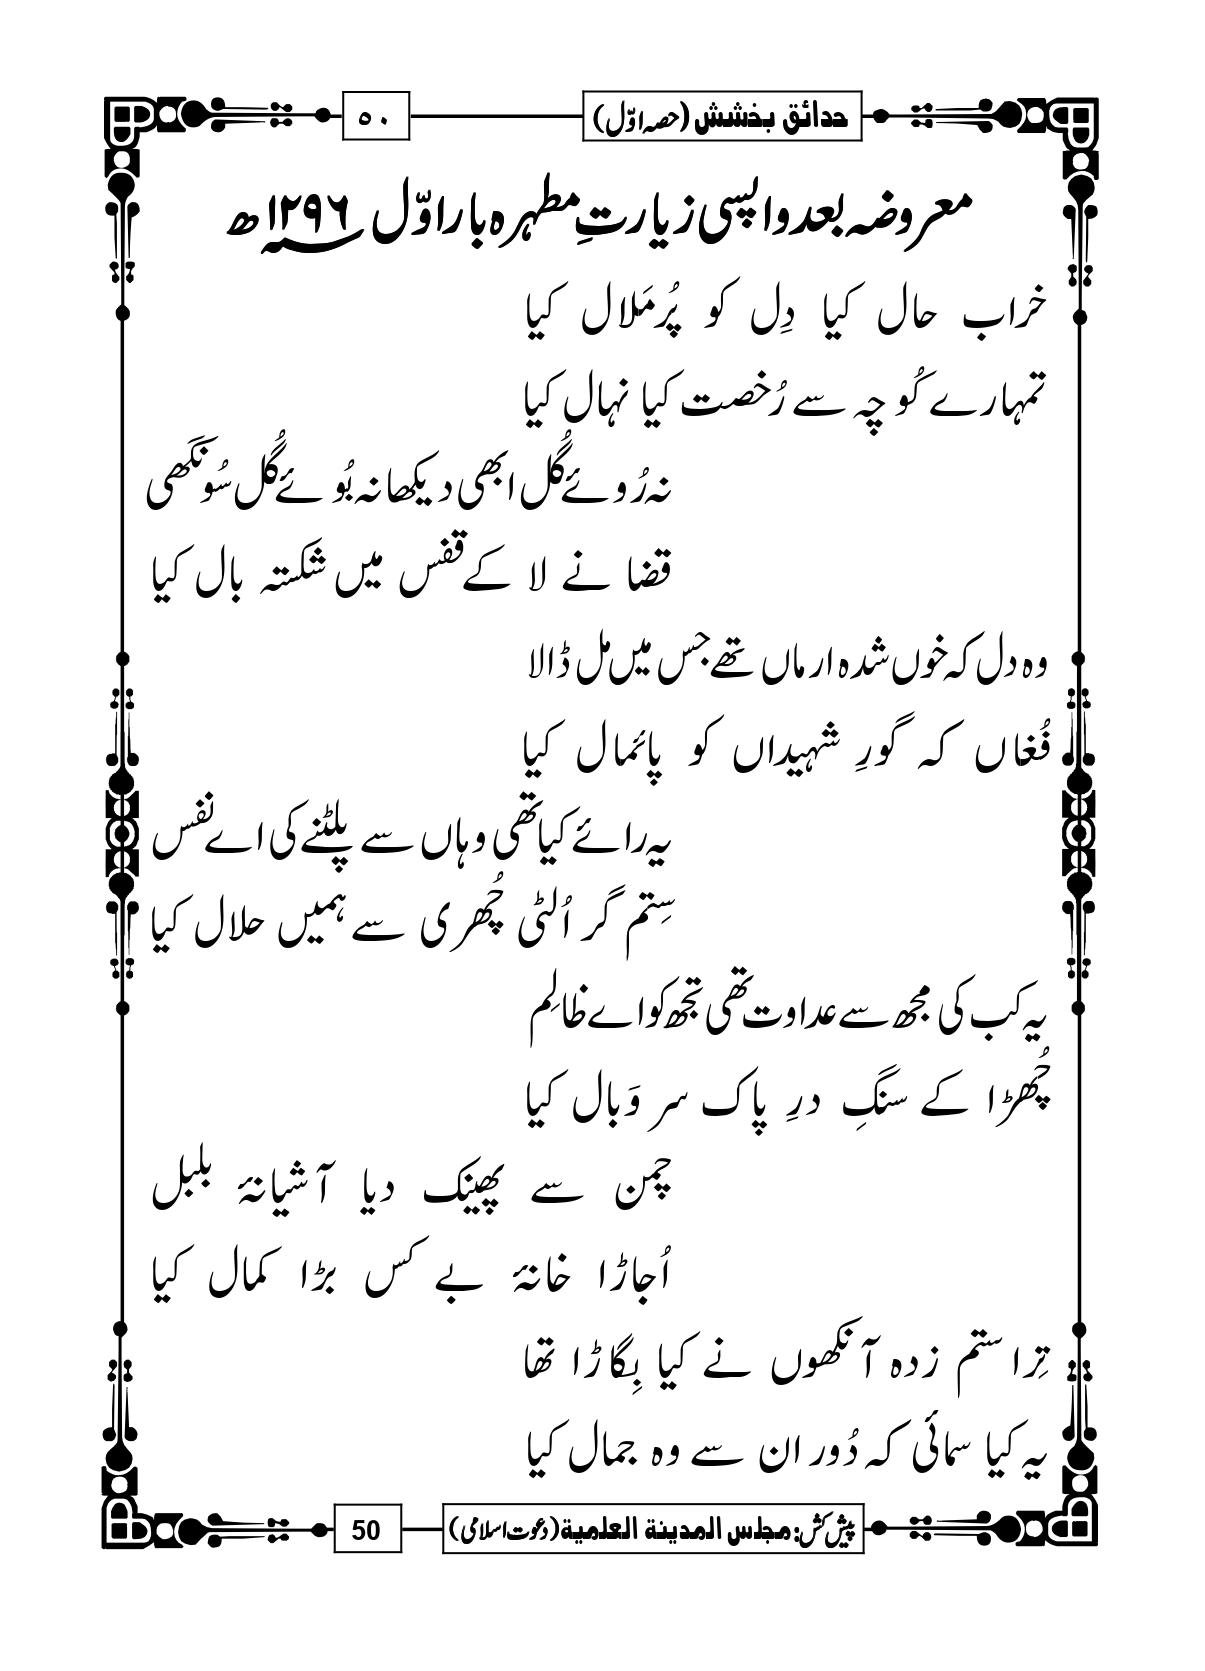 حدائق بخشش (حصہ اوّل)
۵۰
معروضہ بعد واپسی زیارتِ مطہرہ بار اوّل ۱۲۹۶ھ
خراب حال کیا دِل کو پُرمَلال کیا
تمہارے کُوچہ سے رُخصت کیا نہال کیا
نہ رُوئے گُل ابھی دیکھا نہ بُوئے گُل سُونگھی
قضا نے لا کے قفس میں شکستہ بال کیا
وہ دل کہ خوں شدہ ارماں تھے جس میں مل ڈالا
فُغاں کہ گورِ شہیداں کو پائمال کیا
یہ رائے کیا تھی وہاں سے پلٹنے کی اے نفس
سِتم گر اُلٹی چُھری سے ہمیں حلال کیا
یہ کب کی مجھ سے عداوت تھی تجھ کو اے ظالِم
چُھڑا کے سنگِ درِ پاک سر وَبال کیا
چمن سے پھینک دیا آشیانۂ بلبل
اُجاڑا خانۂ بے کس بڑا کمال کیا
تِرا ستم زدہ آنکھوں نے کیا بِگاڑا تھا
یہ کیا سمائی کہ دُور ان سے وہ جمال کیا
پیش کش: مجلس المدینة العلمیة (دعوت اسلامی)
50